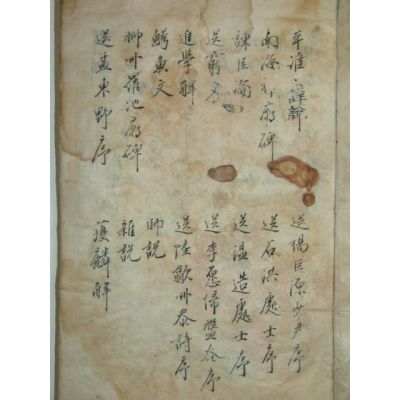 平淮
南海神廟碑
諫臣論
送窮文
進學解
鰐魚文
柳州羅池廟碑
送孟東野序
送楊巨源少尹序
送石洪處士序
送溫造處士序
送李愿歸盤谷序
送陸歙州參詩序
師說
雜說
獲麟解